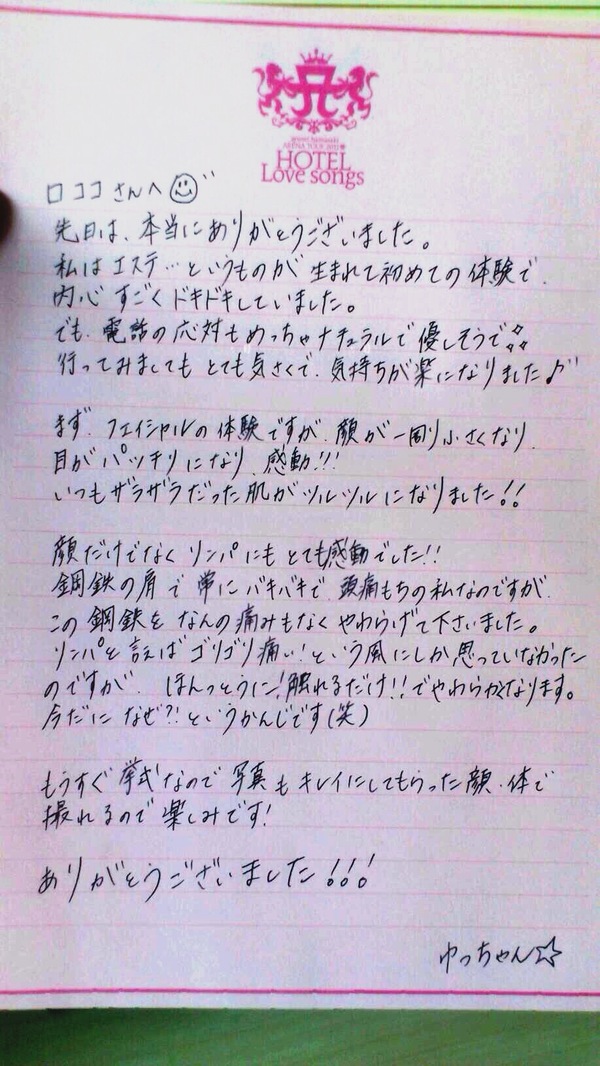 ayumi hamasaki
ARENA TOUR 2012
HOTEL
Love songs
ロココさんへ
先日は、本当にありがとうございました。
私はエステ…というものが生まれて初めての体験で、
内心すごくドキドキしていました。
でも、電話の応対もめっちゃナチュラルで優しそうで
行ってみましても とても気さくで、気持ちが楽になりました♪
まず、フェイシャルの体験ですが、顔が一周り小さくなり、
目がパッチリになり、感動!!!
いつもザラザラだった肌がツルツルになりました!!
顔だけでなくリンパにもとても感動でした!!
鋼鉄の肩で常にバキバキで、頭痛もちの私なのですが、
この鋼鉄をなんの痛みもなくやわらげて下さいました。
リンパと言えばゴリゴリ痛い!という風にしか思っていなかった
のですが、ほんっとうに!触れるだけ!!でやわらかくなります。
今だになぜ?!というかんじです(笑)
もうすぐ挙式なので写真もキレイにしてもらった顔・体で
撮れるので楽しみです!
ありがとうございました!!!
ゆっちゃん☆